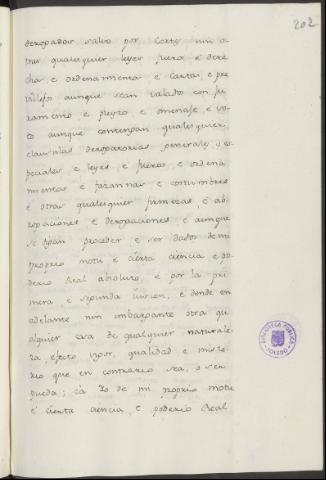 202
derogados salvo por Cortes nin o-
tras qualesquier leyes fueros é dere-
chos e ordenamientos é Cartas é pre-
villejos aunque sean valados con ju-
ramento e pleyto e omenaje e vo-
to aunque contengan qualesquier
clausulas derogatorias generales, y es-
peciales e leyes e fueros e ordena-
mientos e fazannas e costumbres
é otras qualesquier firmezas, é ab-
rogaciones é derogaciones é aunque
se digan proceder e ser dadas de mi
proprio motu é cierta ciencia é po-
derio Real absoluto, é por la pri-
mera é segunda iusion, é dende en
adelante nin embargante otra qu-
alquier cosa de qualquier naturale-
za, efecto vigor, qualidad é miste-
rio que en contrario sea, o ser
pueda; cá Yo de mi proprio motu
é cierta ciencia é poderio Real
BIBLIOTECA PUBLICA
TOLEDO